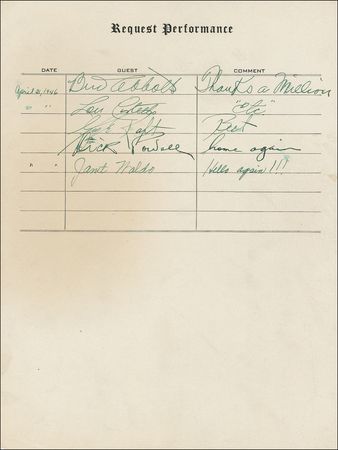 Request Performance
DATE GUEST COMMENT
April 21, 1946 Bud Abbott Thanks a Million
" " Lou Costello
Best
Dick Powell home again
" " Janet Waldo Hello again!!!